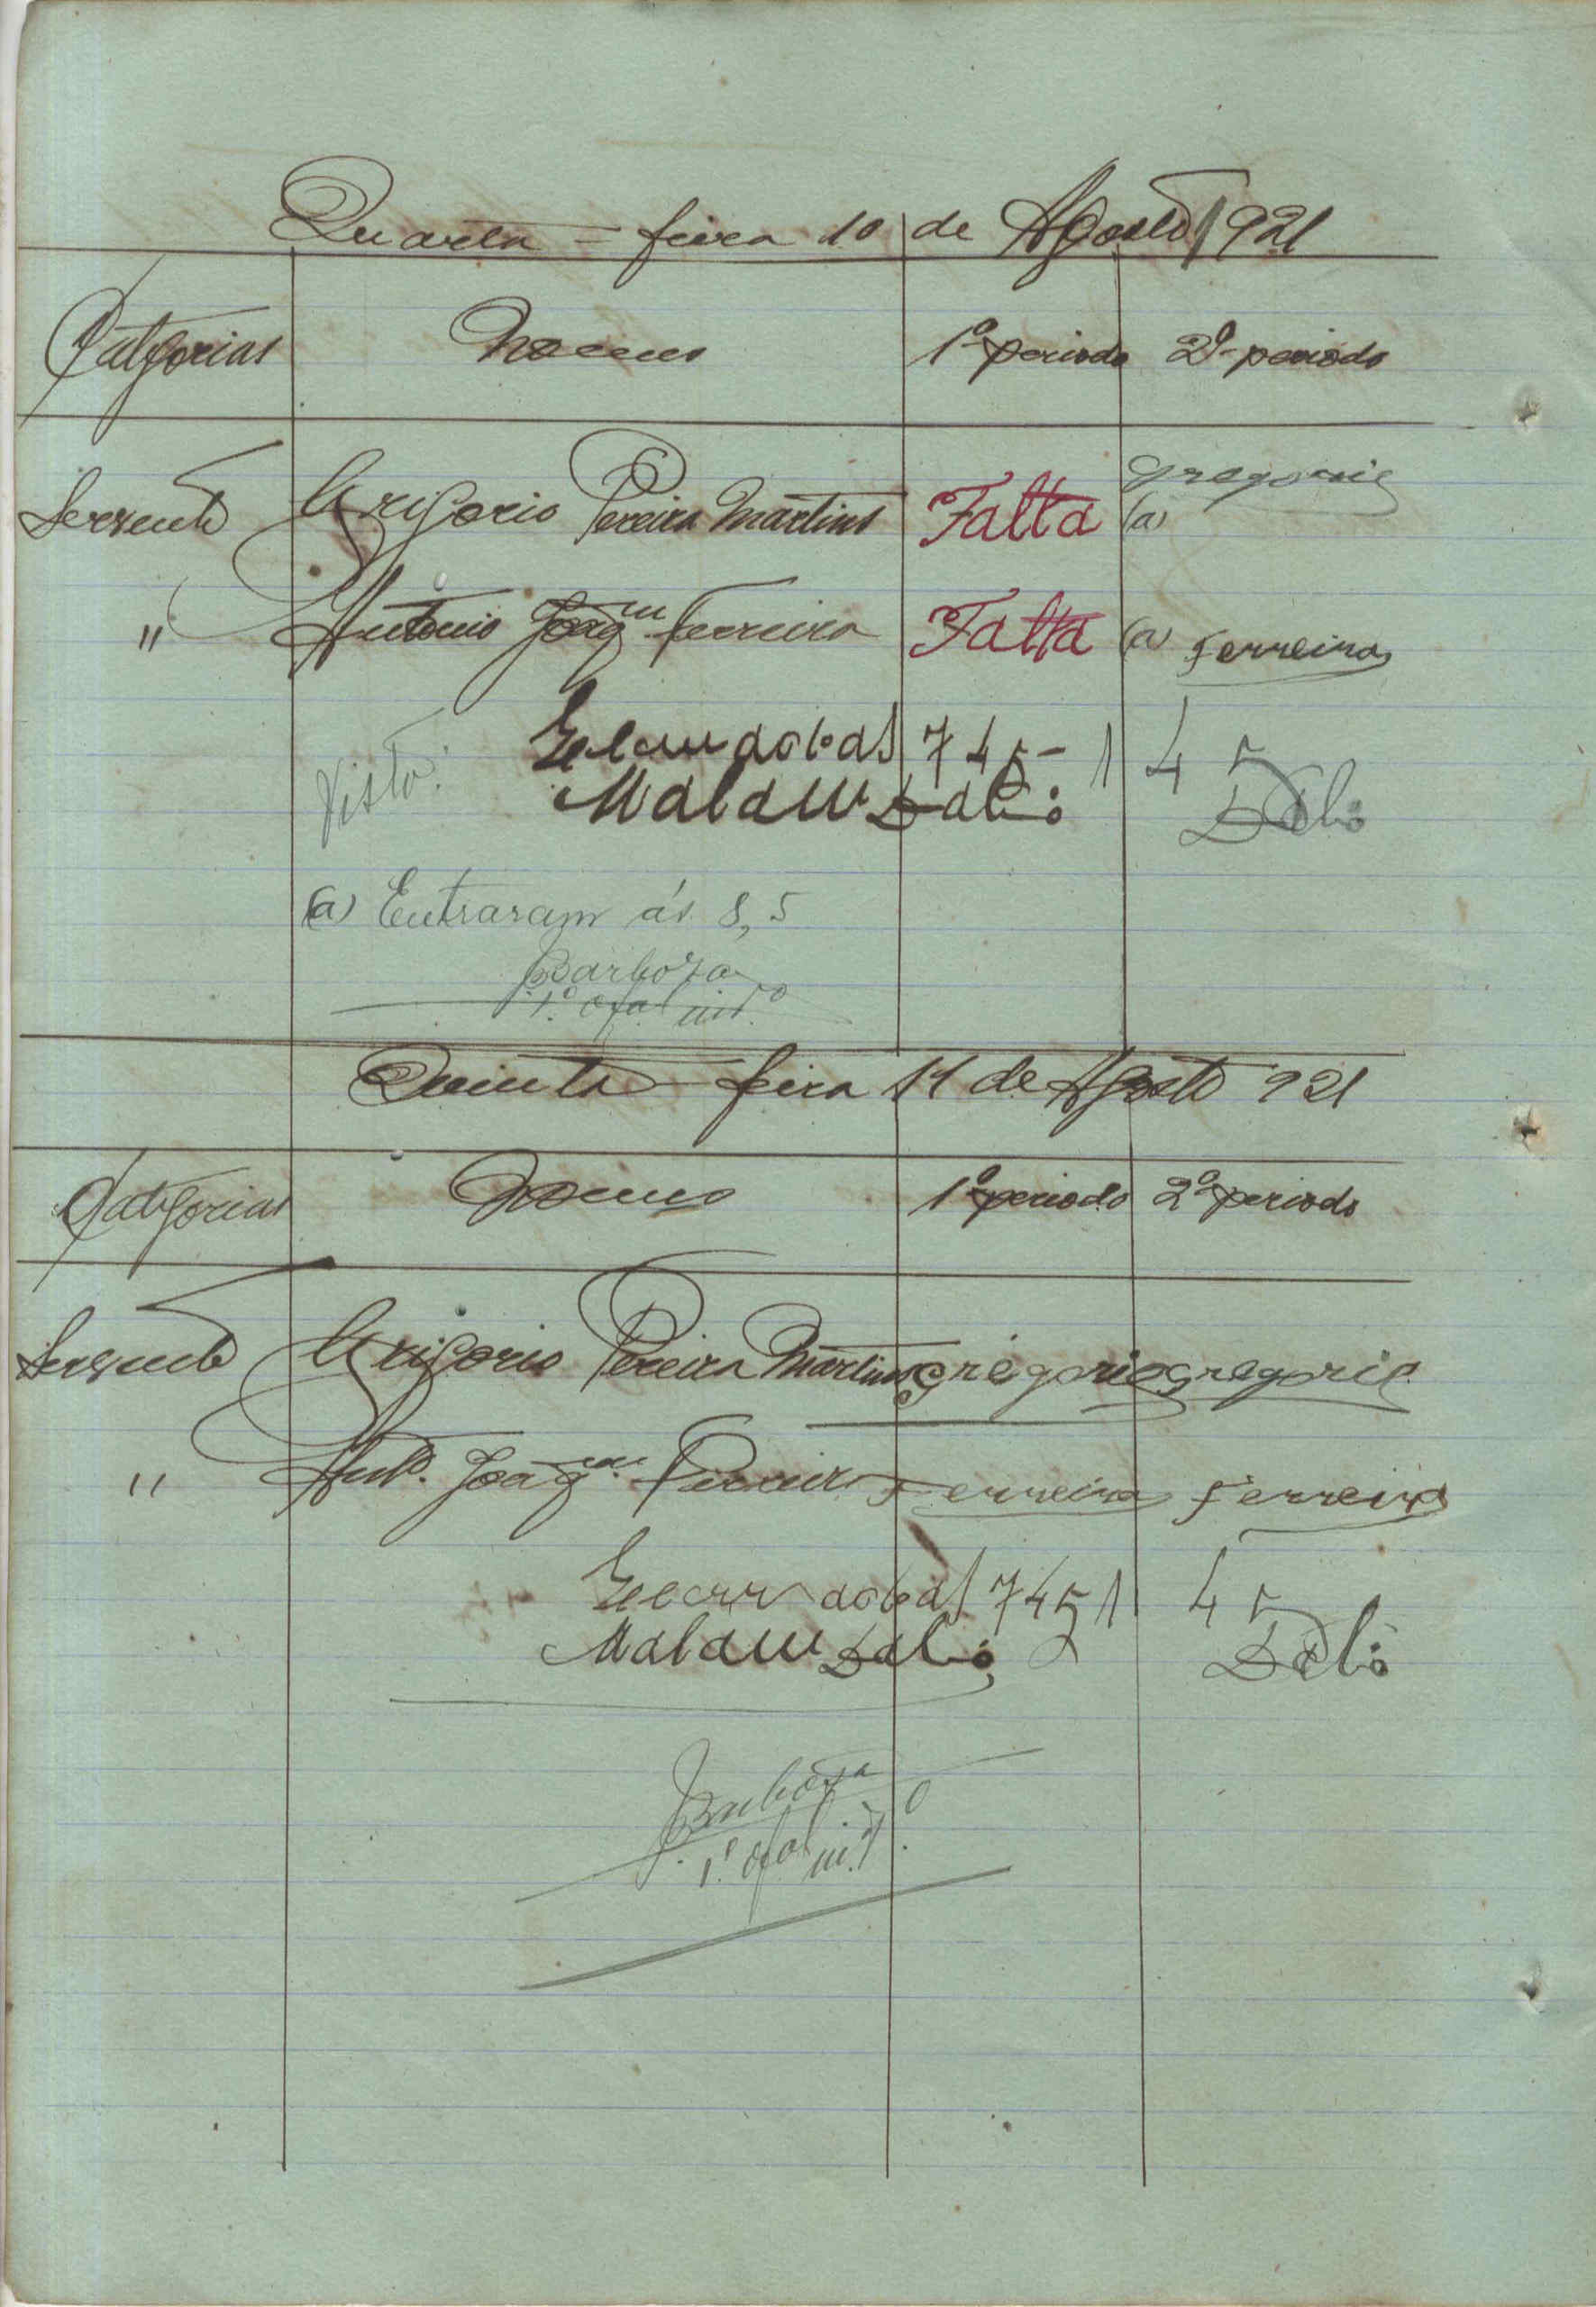 Quarta-feira 10 de Agosto 1921
Categorias Nomes 1º periodo 2º periodo
Servente Grigorio Pereira Martins Falta (a) gregorio
" Antonio Joaqm Ferreira Falta (a) Ferreira
Visto:
7 45 - 1 45
Malam
(a) Entraram ás 8,5
Barboza
1º ofal intº
Quinta-feira 11 de Agosto 921
Categorias Nomes 1º periodo 2º periodo
Servente Grigorio Pereira Martins gregorio gregorio
" Antº Joaqm Ferreira Ferreira Ferreira
7 45 1 45
Malam
Barboza
1º ofal intº